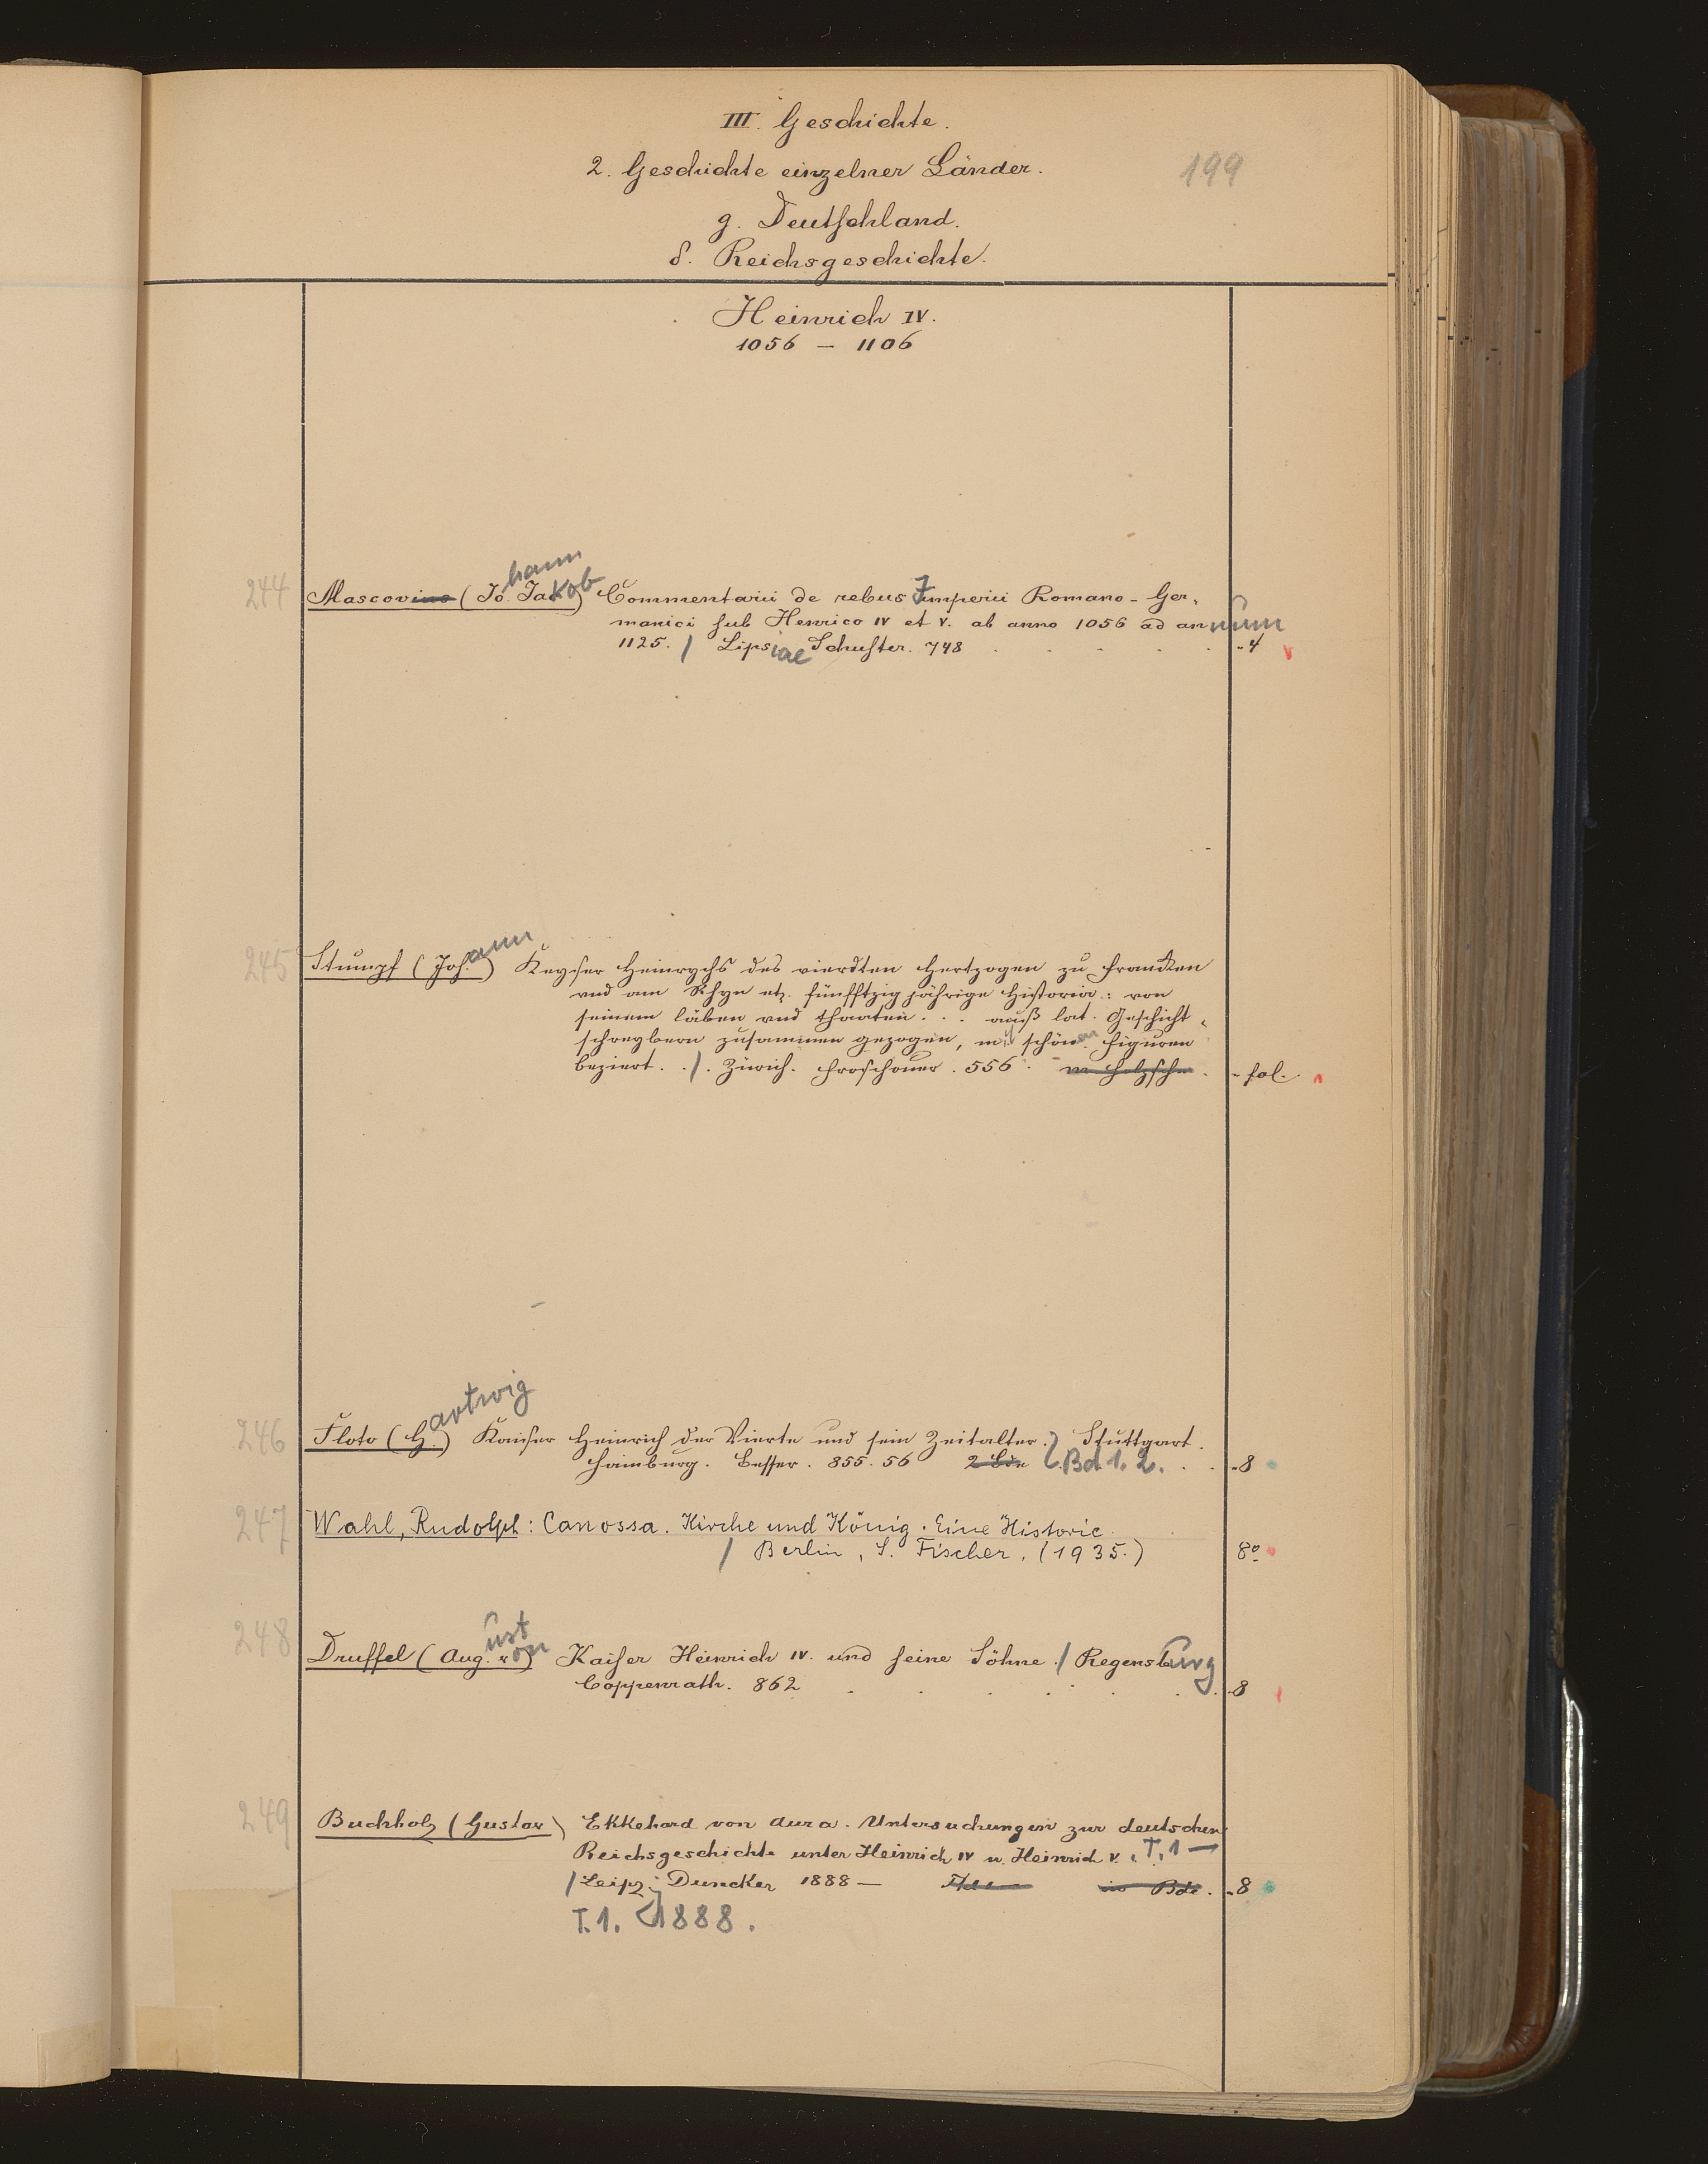 III. Geschichte.
2. Geschichte einzelner Länder.
199
g. Deutschland.
δ. Reichsgeschichte.
Heinrich IV.
1056 – 1106
244 Mascovius (Johann Jakob) Commentarii de rebus Imperii Romano-Ger-
manici sub Henrico IV et V. ab anno 1056 ad annum
1125. / Lipsiae Schuster. 748 . . . . . - 4
245 Stumpf (Johann) Keyser Heinrychs des vierdten Hertzogen zu Francken
vnd am Rhyn etz. fünfftzigjährige Historia: von
seinem läben vnd thaaten ... auß lat. Geschicht-
schreybern zusammen gezogen, mit schönen Figuren
beziert. . /. Zürich. Froschouer. 556. m Holzschn. - fol.
246 Floto (Hartwig) Kaiser Heinrich der Vierte und sein Zeitalter. Stuttgart.
Hamburg. Besser. 855. 56 2 Bde Bd 1. 2. . . - 8
247 Wahl, Rudolph: Canossa. Kirche und König. Eine Historie.
/ Berlin, S. Fischer, (1935.) 8º
248 Druffel (August von) Kaiser Heinrich IV. und seine Söhne. / Regensburg
Coppenrath. 862 . . . . . . . - 8
249 Buchholz (Gustav) Ekkehard von Aura. Untersuchungen zur deutschen
Reichsgeschichte unter Heinrich IV u. Heinrich V. T. 1 —
/ Leipz. Duncker 1888 — in Bde. - 8
T. 1. 1888.